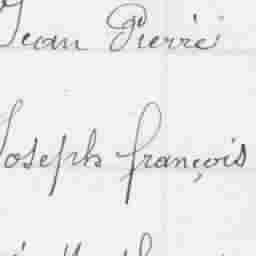 Jean Pierre
Joseph françois